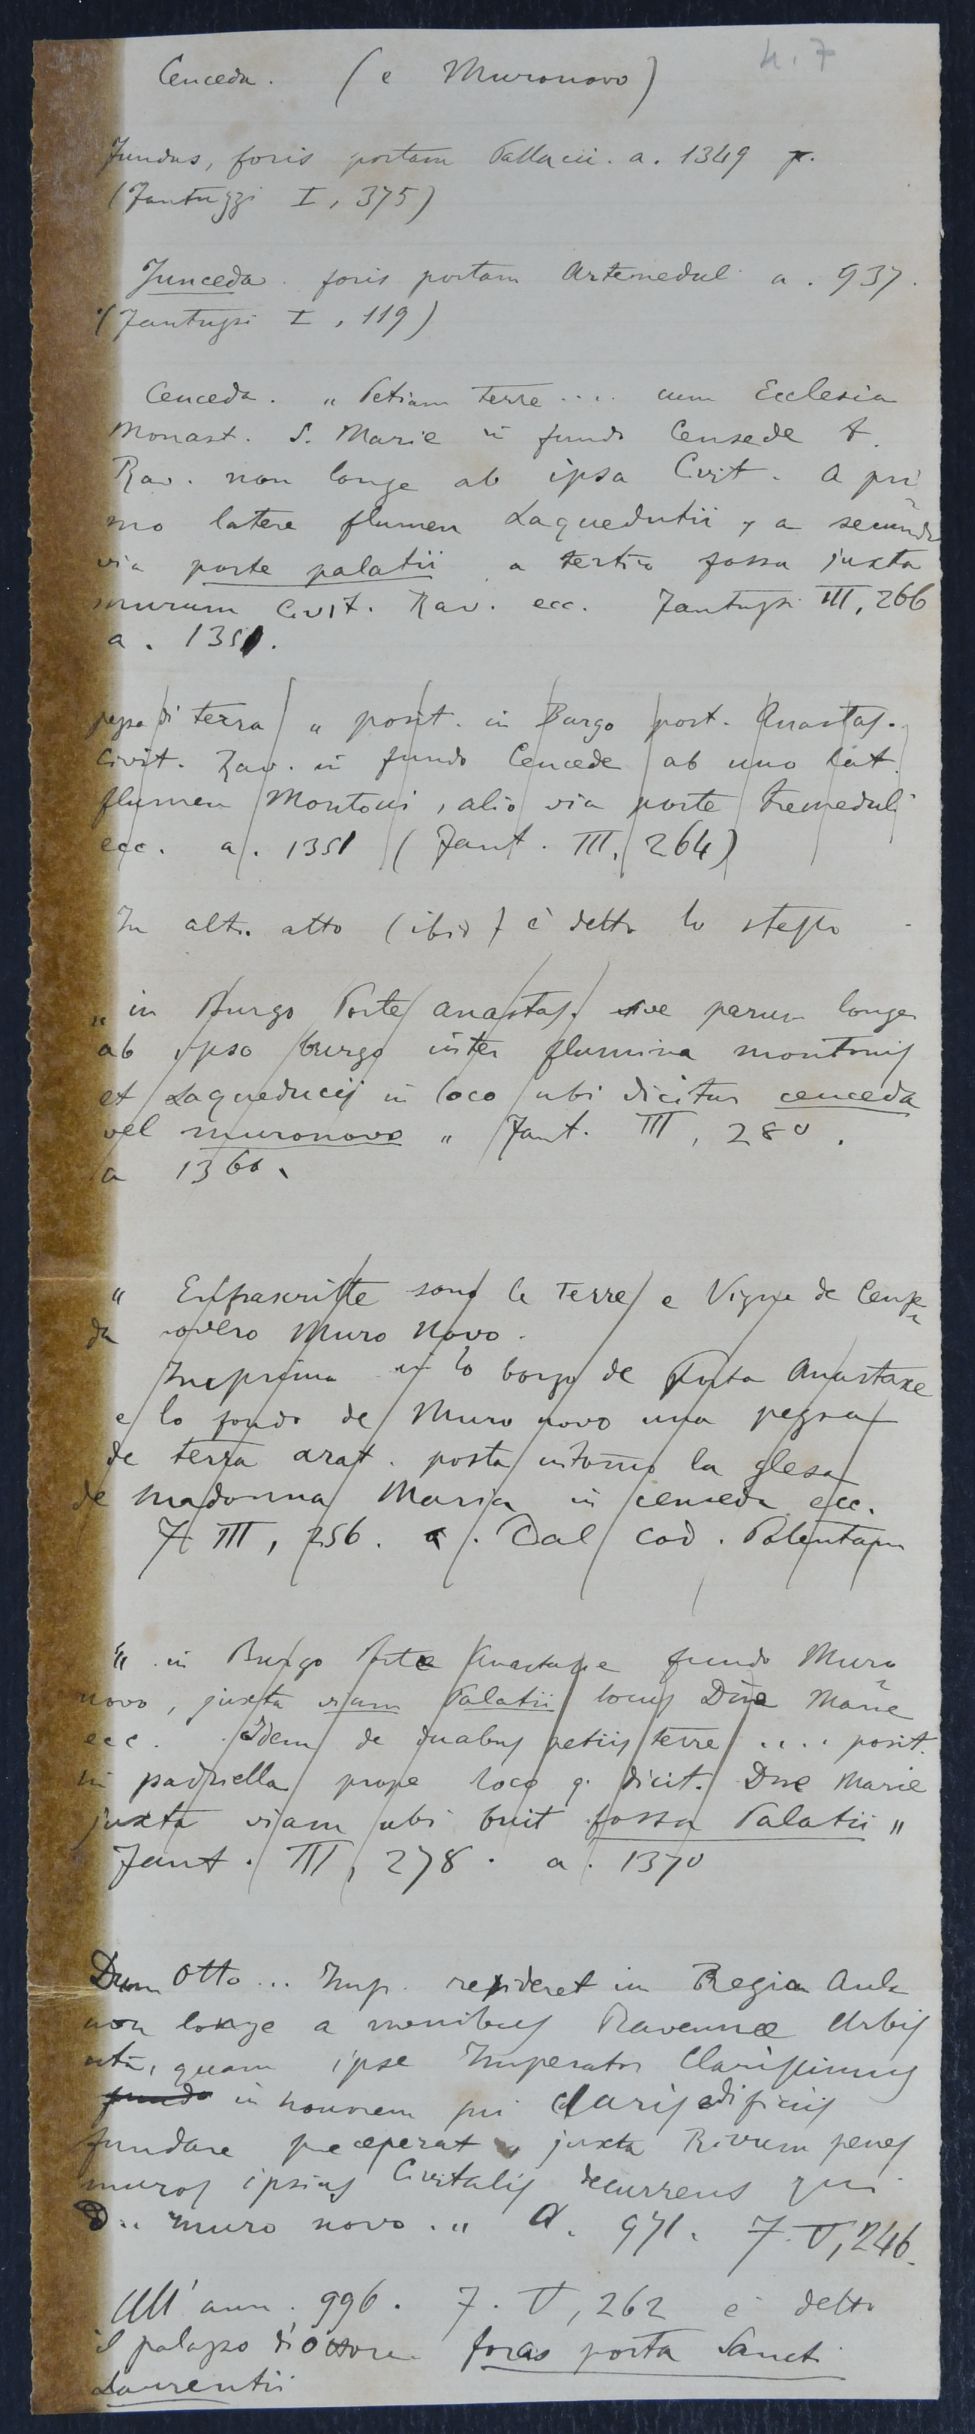 4.7
Cenceda. (e Muronovo)
Fundus, foris portam Pallacii. a. 1349
(Fantuzzi I, 375)
Junceda. foris portam Artemedul a. 937.
(Fantuzzi I, 119)
Cenceda. „ Petiam terre .... cum Ecclesia
Monast. S. Marie in fundo Censede
Rav. non longe ab ipsa Civit. a pri
mo latere flumen Laquedutii, a secundo
via porte palatii a tertio fossa juxta
murum Civit. Rav. ecc. Fantuzzi III, 266
a. 1351.
pezza di terra „ posit. in Burgo port. Anastas.
Civit. Rav. in fundo Cencede ab uno lat.
flumen Montoni, alio via porte tremeduli
ecc. a. 1351 (Fant. III, 264)
In altro atto (ibid) è detto lo stesso
„ in Burgo Porte Anastas. sive parum longe
ab ipso burgo inter flumina montonis
et Laqueducis in loco ubi dicitur cenceda
vel muronovo „ Fant. III, 280.
a 1360.
„ Enfrascritte sono le Terre e Vigne de Cence
da overo Muro Novo.
Ineprima in lo borgo de Porta Anastaxe
e lo fondo de Muro novo una pezza
de terra arat. posta intorno la glesa
de Madonna Maria in cenceda ecc.
F. III, 256. a. Dal cod.
„ in Burgo Porte Anastasie fundo Muro
novo, juxta viam Palatii locus Dñe Marie
ecc. Idem de duabus petiis terre .... posit.
in padusella prope loco q. dicit. Dne Marie
juxta viam ubi fuit fossa Palatii „
Fant. III, 278. a. 1370
Dum Otto ... Imp. resideret in Regia Aula
non longe a menibus Ravennæ Urbis
sita, quam ipse Imperator Clarissimus
in honorem sui claris edificiis
fundare preceperat juxta Rivum penes
muros ipsius Civitatis decurrens qui
D.. muro novo. „ a. 971. F. V, 246.
All'ann. 996. F. V, 262 è detto
il palazzo di Ottone foras porta Sancti
Laurentii